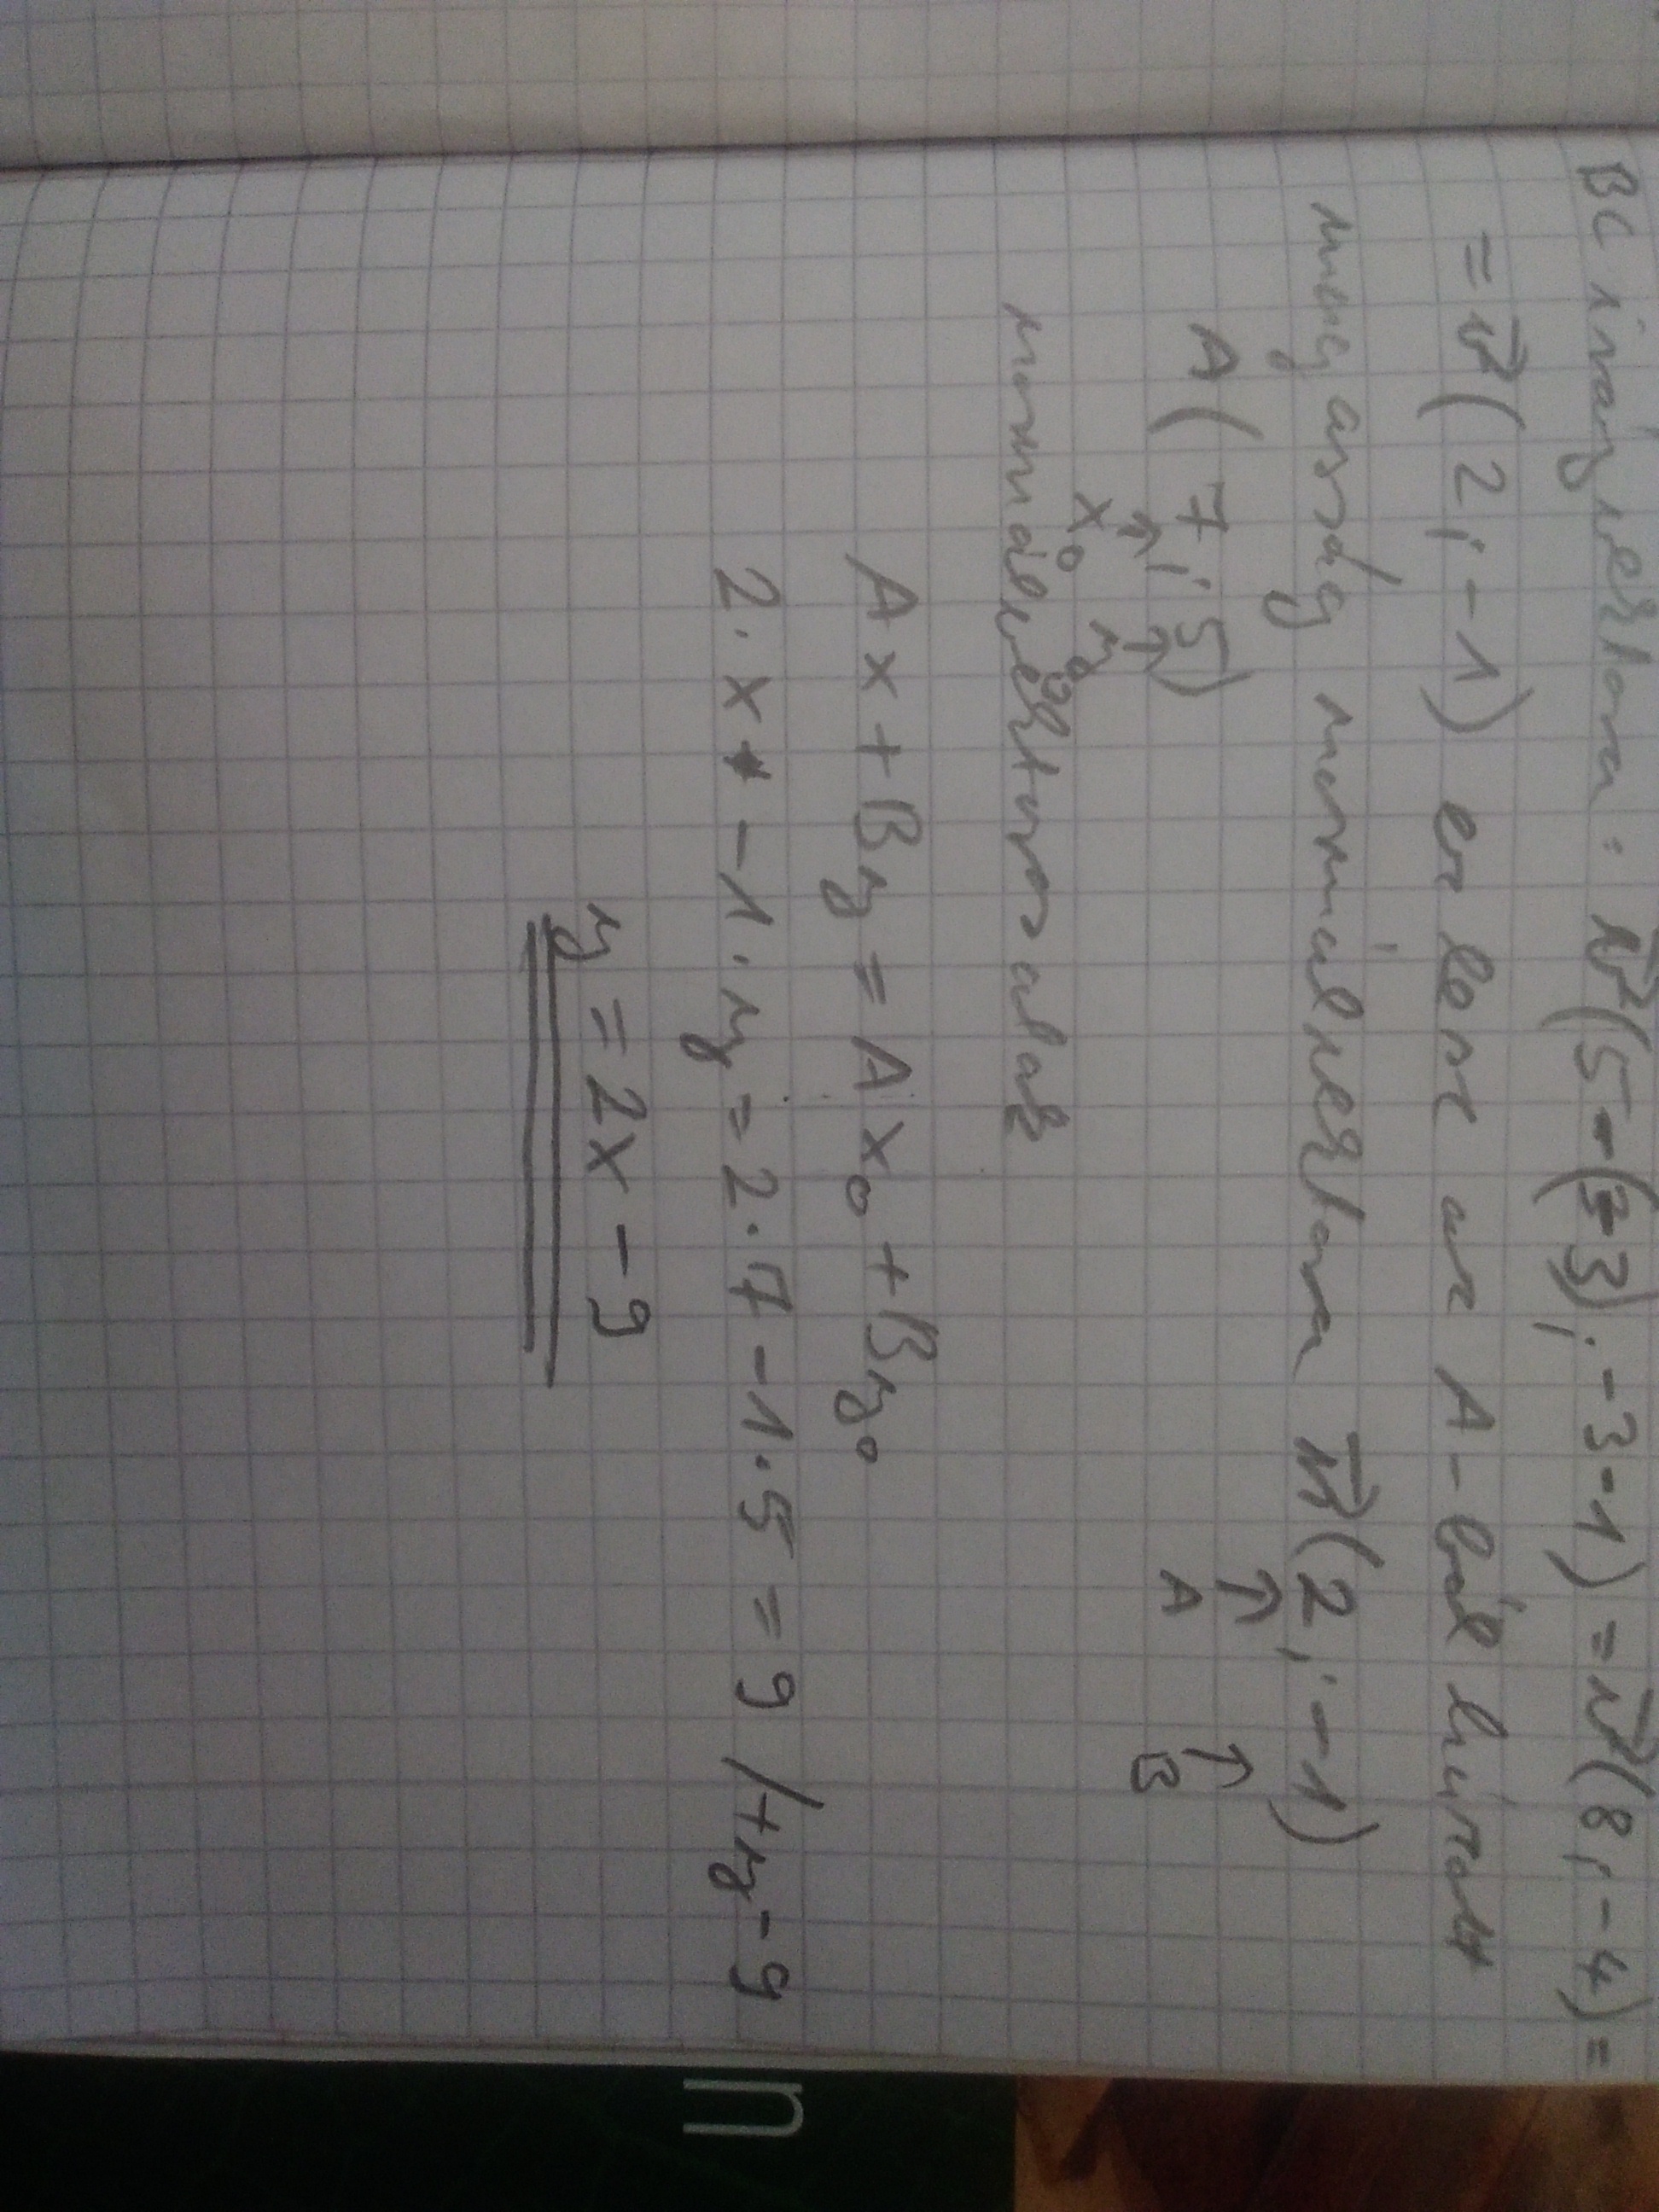 BC irányvektora: v⃗(5-(-3); -3-1) = v⃗(8; -4) =
= v⃗(2; -1) ez lesz az A-ból húzott
magasság normálvektora n⃗(2; -1)
↑ A ↑ B
A(7; 5)
↑ x₀ ↑ y₀
normálvektoros alak
Ax + By = Ax₀ + By₀
2·x -1·y = 2·7 -1·5 = 9 /+y-9
y = 2x - 9
n